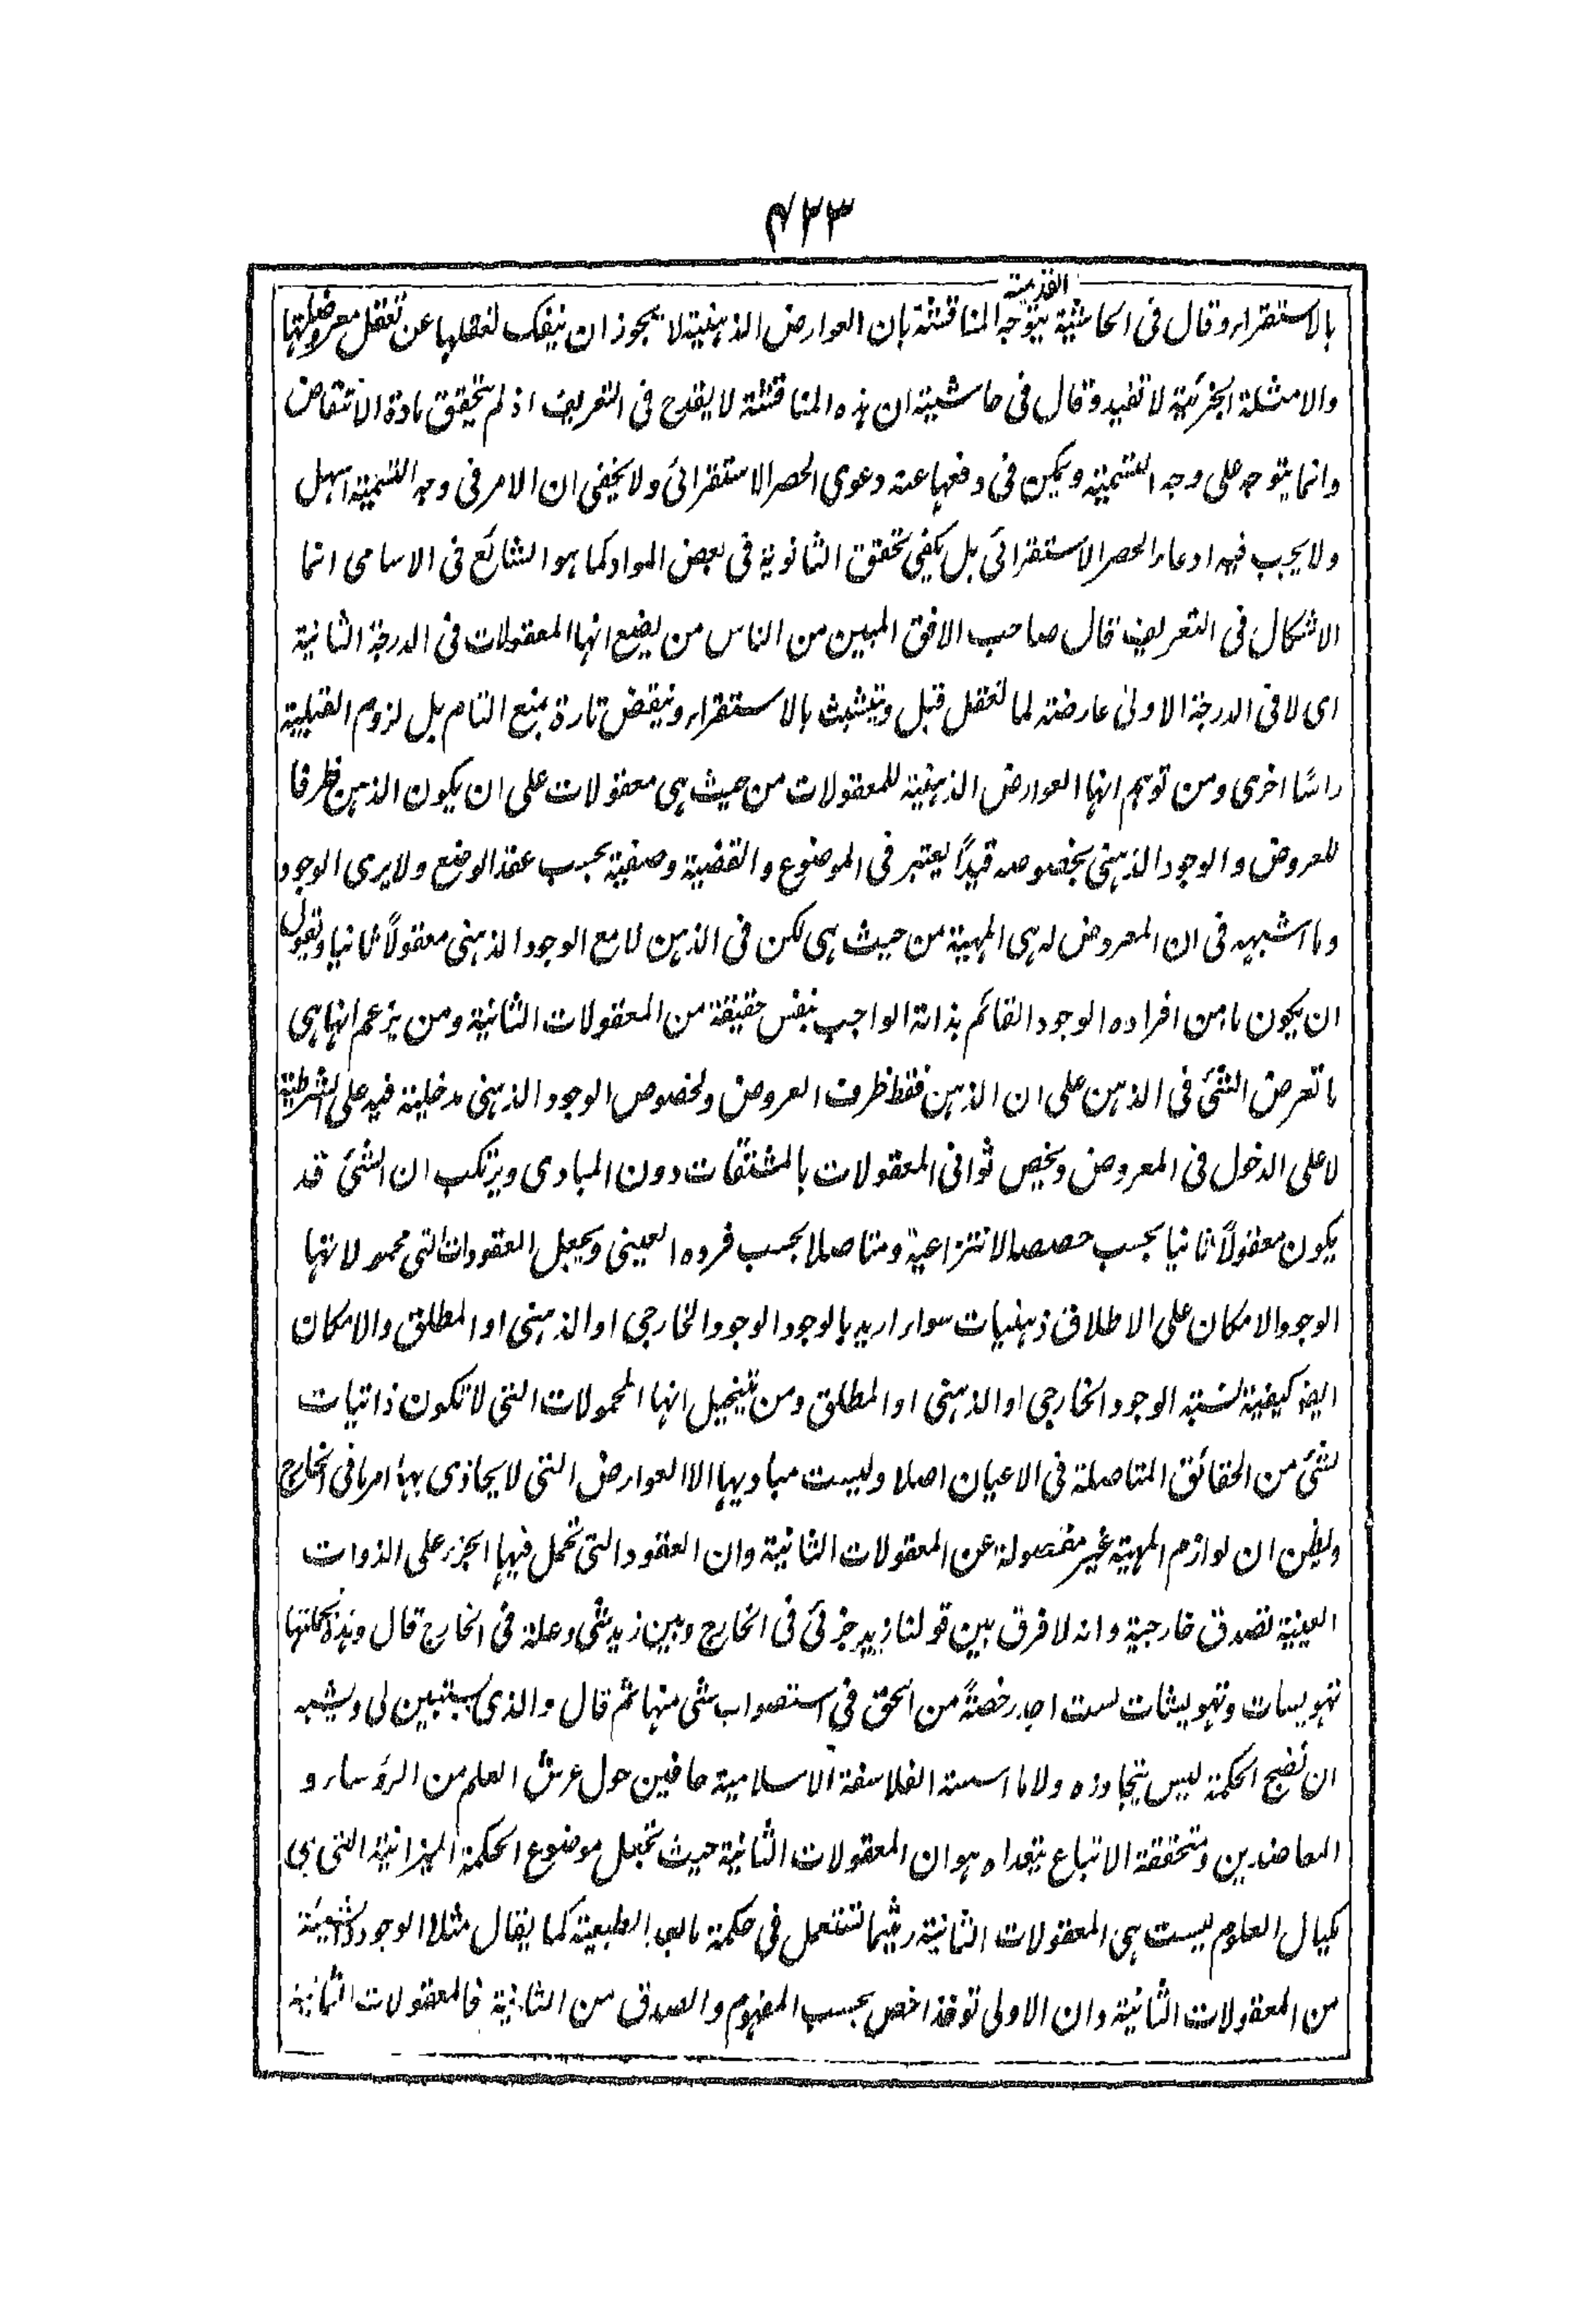 ۴۲۳
القديمة
بالاستقراء وقال فى الحاشية يتوجه المناقشة بان العوارض الذهنية لا يجوز ان ينفك تعقلها عن تعقل معروضاتها
والامثلة الجزئية لا تفيد وقال فى حاشية ان هذه المناقشة لا يقدح فى التعريف اذ لم يتحقق مادة الانتقاض
وانما يتوجه على وجه التسمية ويمكن فى دفعها عنه دعوى الحصر الاستقرائى ولا يخفى ان الامر فى وجه التسمية اسهل
ولا يجب فيه ادعاء الحصر الاستقرائى بل يكفى تحقق الثانوية فى بعض المواد كما هو الشائع فى الاسامى انما
الاشكال فى التعريف قال صاحب الافق المبين من الناس من يضع انها المعقولات فى الدرجة الثانية
اى لا فى الدرجة الاولى عارضة لما تعقل قبل ويتشبث بالاستقراء وينقض تارة بمنع التام بل لزوم القبلية
راسًا اخرى ومن توهم انها العوارض الذهنية للمعقولات من حيث هى معقولات على ان يكون الذهن ظرفا
للعروض والوجود الذهنى بخصوصه قيدًا يعتبر فى الموضوع والقضية وصفية بحسب عقد الوضع ولا يرى الوجود
وما اشبهه فى ان المعروض له هى المهية من حيث هى لكن فى الذهن لا مع الوجود الذهنى معقولًا ثانيا وتقول
ان يكون ما من افراده الوجود القائم بذاته الواجب بنفس حقيقة من المعقولات الثانية ومن يزعم انها هى
ما تعرض الشئ فى الذهن على ان الذهن فقط ظرف العروض ولخصوص الوجود الذهنى مدخلية فيه على الشرطية
لا على الدخول فى المعروض ويخص ثوانى المعقولات بالمشتقات دون المبادى ويرتكب ان الشئ قد
يكون معقولًا ثانيا بحسب حصصه الانتزاعية ومتاصلا بحسب فرده العينى ويجعل العقودات التى محمولاتها
الوجود والامكان على الاطلاق ذهنيات سواء اريد بالوجود الوجود الخارجى او الذهنى او المطلق والامكان
ايضا كيفية لنسبة الوجود الخارجى او الذهنى او المطلق ومن يتخيل انها المحمولات التى لا تكون ذاتيات
لشئ من الحقائق المتاصلة فى الاعيان اصلا وليست مباديها الا العوارض التى لا يحاذى بها امر ما فى الخارج
ويظن ان لوازم المهية غير مفصولة عن المعقولات الثانية وان العقود التى تحمل فيها الجزء على الذوات
العينية تصدق خارجية وانه لا فرق بين قولنا زيد جزئى فى الخارج وبين زيد شئ وعلة فى الخارج قال وهذه كلها
تهويسات وتهويشات لست اجد رخصةً من الحق فى استصواب شئ منها ثم قال والذى يستبين لى ويشبه
ان نضج الحكمة ليس يتجاوزه ولا ما اسسته الفلاسفة الاسلامية حافين حول عرش العلم من الرؤساء و
المعاضدين ومتحققة الاتباع يتعداه هو ان المعقولات الثانية حيث تجعل موضوع الحكمة الميزانية التى هى
مكيال العلوم ليست هى المعقولات الثانية ريثما تستعمل فى حكمة ما بعد الطبيعة كما يقال مثلا الوجود والشيئية
من المعقولات الثانية وان الاولى توخذ اخص بحسب المفهوم والصدق من الثانية فالمعقولات الثانية